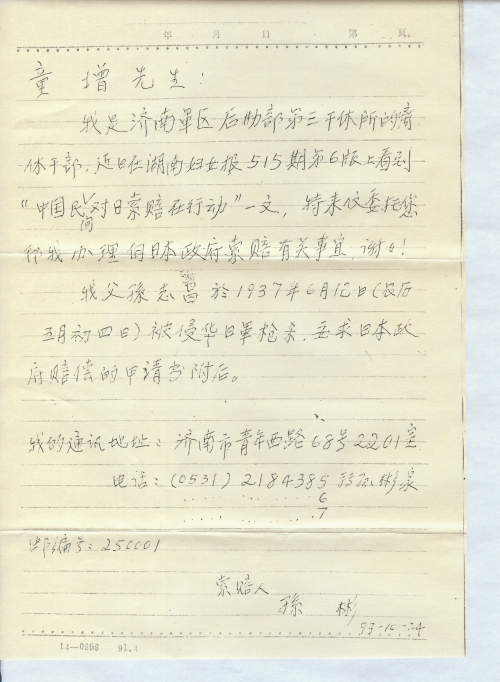 年 月 日 第 页
童增先生：
我是济南军区后勤部第三干休所的离
休干部，近日在湖南妇女报515期第6版上看到
“中国民间对日索赔在行动”一文，特来仪委托您
你我办理向日本政府索赔有关事宜，谢谢！
我父孫志 於1937年6月12日（农历
五月初四日）被侵华日軍枪杀，要求日本政
府赔偿的申请书附后。
我的通讯地址：济南市青年西路68号2201室
电话：（0531）2184385 转孙彬家
6
7
邮编号：250001
索赔人
孫 彬
14—0868 91.4